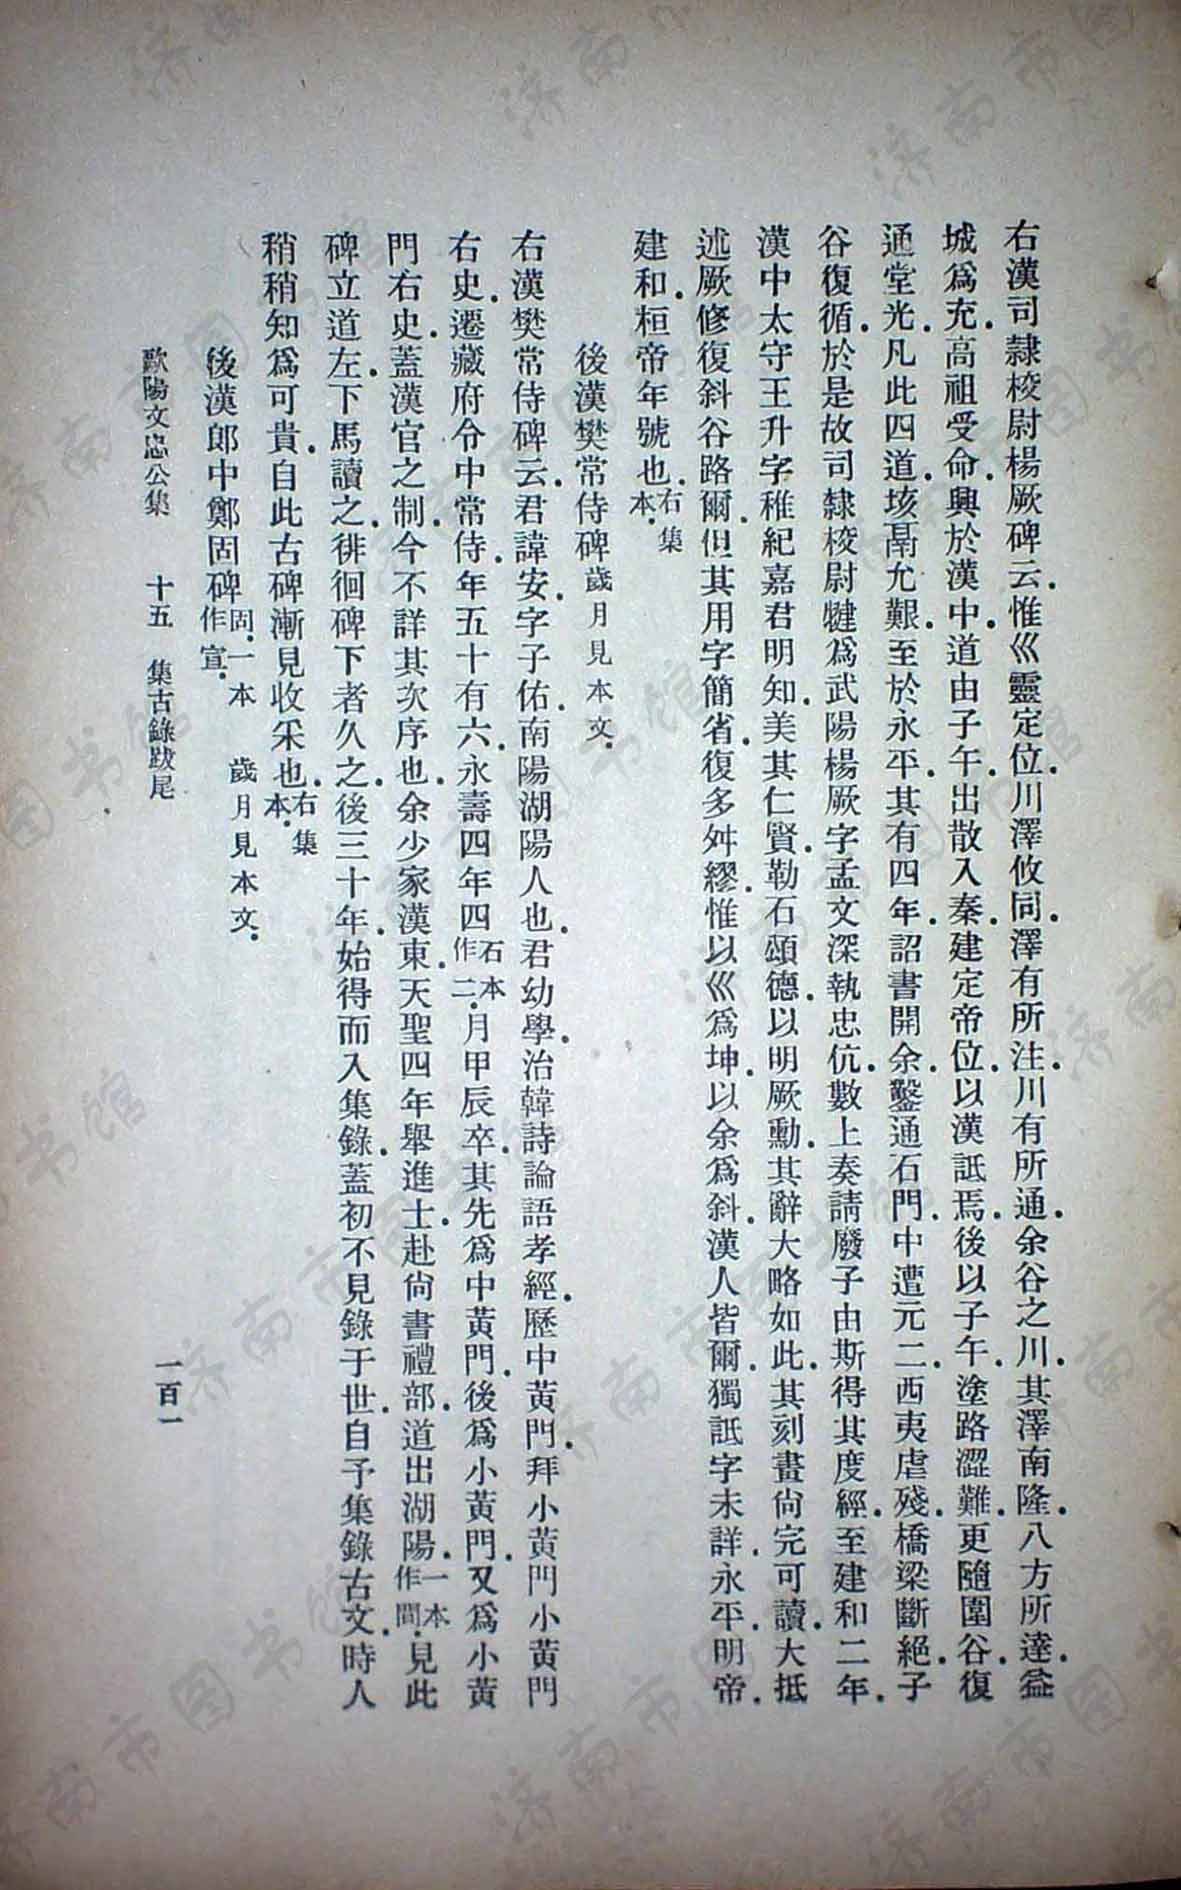 右漢司隸校尉楊厥碑云.惟巛靈定位.川澤攸同.澤有所注.川有所通.余谷之川.其澤南隆.八方所達.益
城爲充.高祖受命.興於漢中.道由子午.出散入秦.建定帝位.以漢詆焉.後以子午.塗路澀難.更隨圍谷.復
通堂光.凡此四道.垓鬲尤艱.至於永平.其有四年.詔書開余.鑿通石門.中遭元二.西夷虐殘.橋梁斷絕.子
谷復循.於是故司隸校尉犍爲武陽楊厥字孟文深執忠伉.數上奏請.廢子由斯.得其度經.至建和二年.
漢中太守王升字稚紀嘉君明知.美其仁賢.勒石頌德.以明厥勳.其辭大略如此.其刻畫尙完可讀.大抵
述厥修復斜谷路爾.但其用字簡省.復多舛繆.惟以巛爲坤.以余爲斜.漢人皆爾.獨詆字未詳.永平.明帝.
建和.桓帝年號也.右集本.
後漢樊常侍碑歲月見本文.
右漢樊常侍碑云.君諱安.字子佑.南陽湖陽人也.君幼學.治韓詩論語孝經.歷中黃門.拜小黃門小黃門
右史.遷藏府令中常侍.年五十有六.永壽四年四石本作二.月甲辰卒.其先爲中黃門.後爲小黃門.又爲小黃
門右史.蓋漢官之制.今不詳其次序也.余少家漢東.天聖四年舉進士.赴尙書禮部.道出湖陽.一本作間.見此
碑立道左.下馬讀之.徘徊碑下者久之.後三十年.始得而入集錄.蓋初不見錄于世.自予集錄古文.時人
稍稍知爲可貴.自此古碑漸見收采也.右集本.
後漢郎中鄭固碑固.一本作宣. 歲月見本文.
歐陽文忠公集 十五 集古錄跋尾 一百一
济南市图书馆